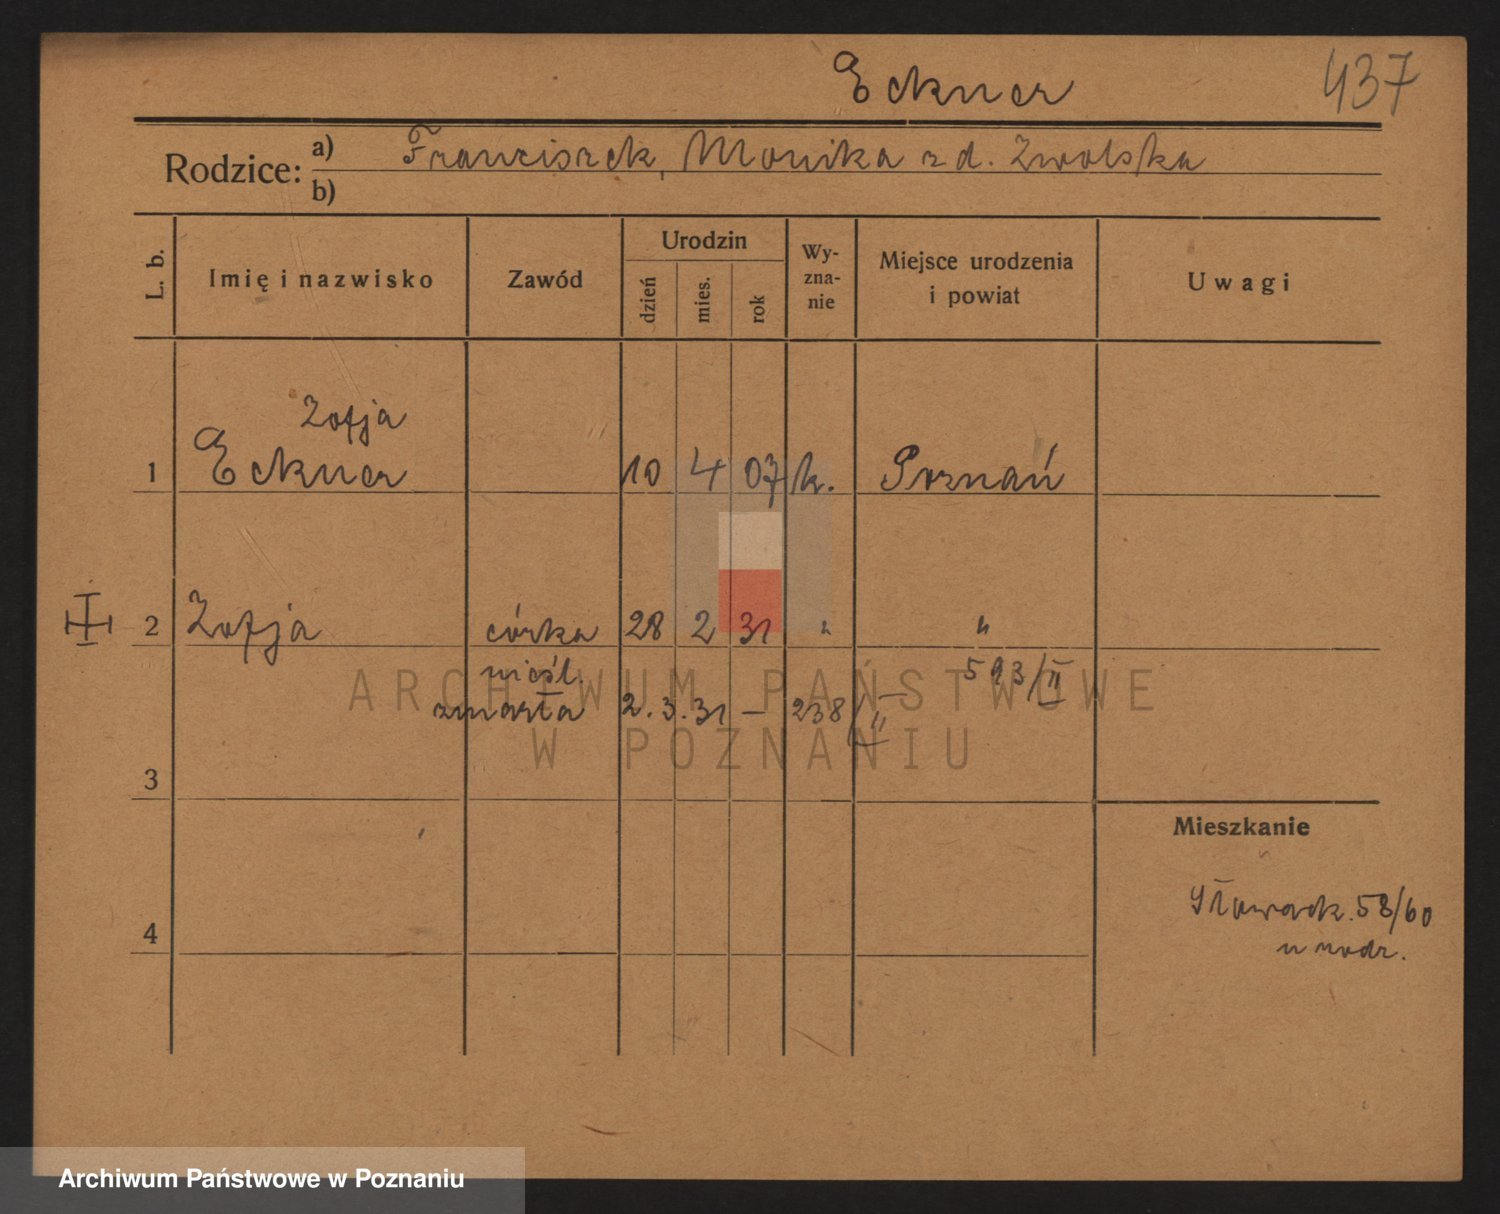 Eckner
437
Rodzice: a) Franciszek, Monika zd. Zwolska
b)
L. b.
Imię i nazwisko
Zawód
Urodzin
dzień
mies.
rok
Wy-
zna-
nie
Miejsce urodzenia
i powiat
Uwagi
Zofja
1 Eckner 10 4 07 k. Poznań
2 Zofja córka 28 2 31 " "
nieśl. 593/II
zmarła 2.3.31 — 238/II
3
Mieszkanie
Słowack. 58/60
u rodz.
4
ARCHIWUM PAŃSTWOWE
W POZNANIU
Archiwum Państwowe w Poznaniu